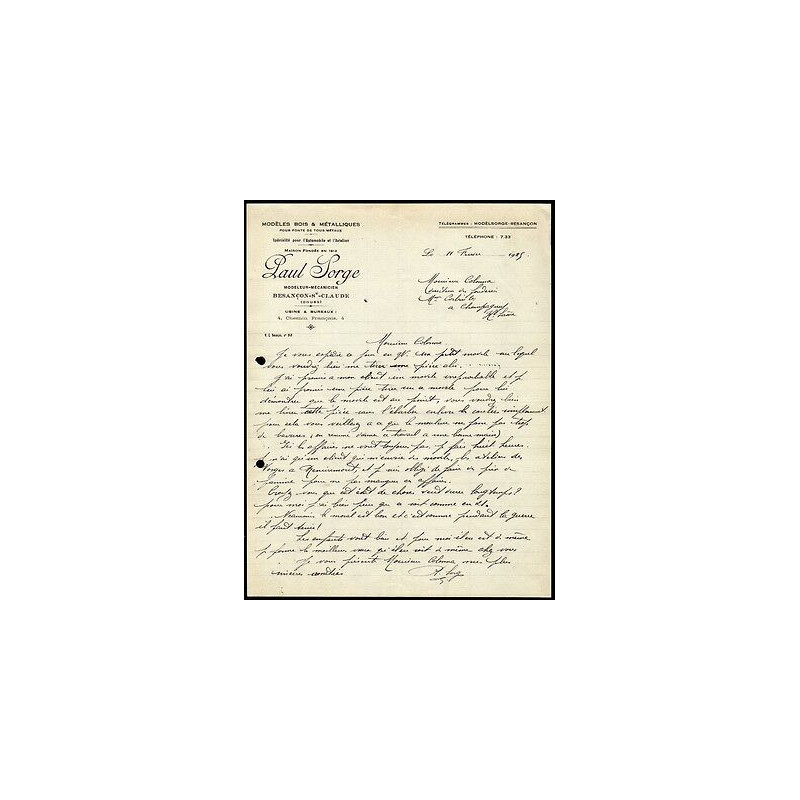 MODÈLES BOIS & MÉTALLIQUES
POUR FONTE DE TOUS MÉTAUX
Spécialité pour l'Automobile et l'Aviation
MAISON FONDÉE EN 1912
Paul Sorge
MODELEUR-MÉCANICIEN
BESANÇON-ST-CLAUDE
(DOUBS)
USINE & BUREAUX :
4, Chemin Français, 4
TÉLÉGRAMMES : MODELSORGE-BESANÇON
TÉLÉPHONE : 7.33
Le 11 1935
Monsieur Colonna
Directeur des fonderies
a Champagnole
Monsieur Colonna.
Je vous expédie ce jour en gV. un petit modèle au lequel
vous voudrez bien me tirer une pièce
J'ai promis a mon client un modèle et je
lui ai promis une pièce tirée au modèle pour lui
démontrer que le modèle est au point, vous voudrez bien
me tirer cette pièce sans l'ébarber enlever les coulées simplement
pour cela vous veillerez a ce que le mouleur ne fasse pas trop
de bavures, (en resumé donnez a travail a une bonne main)
Ici les affaires ne vont toujours pas, je fais huit heures
je n'ai qu'un client qui m'envoie des modèles, les ateliers des
Vosges a Remiremont, et je suis obligé de faire un prix de
famine pour ne pas manquer en affaire.
Croyez vous que cet état de chose veut durer longtemps?
pour moi j'ai bien peur que ce soit comme en
Néanmoins le moral est bon et c'est comme pendant la guerre
il faut tenir!
Les enfants vont bien et pour moi il en est de même
je forme le meilleur voeux qu'il en soit de même chez vous
Je vous présente Monsieur Colonna, mes plus
sincères amitiés
P. Sorge